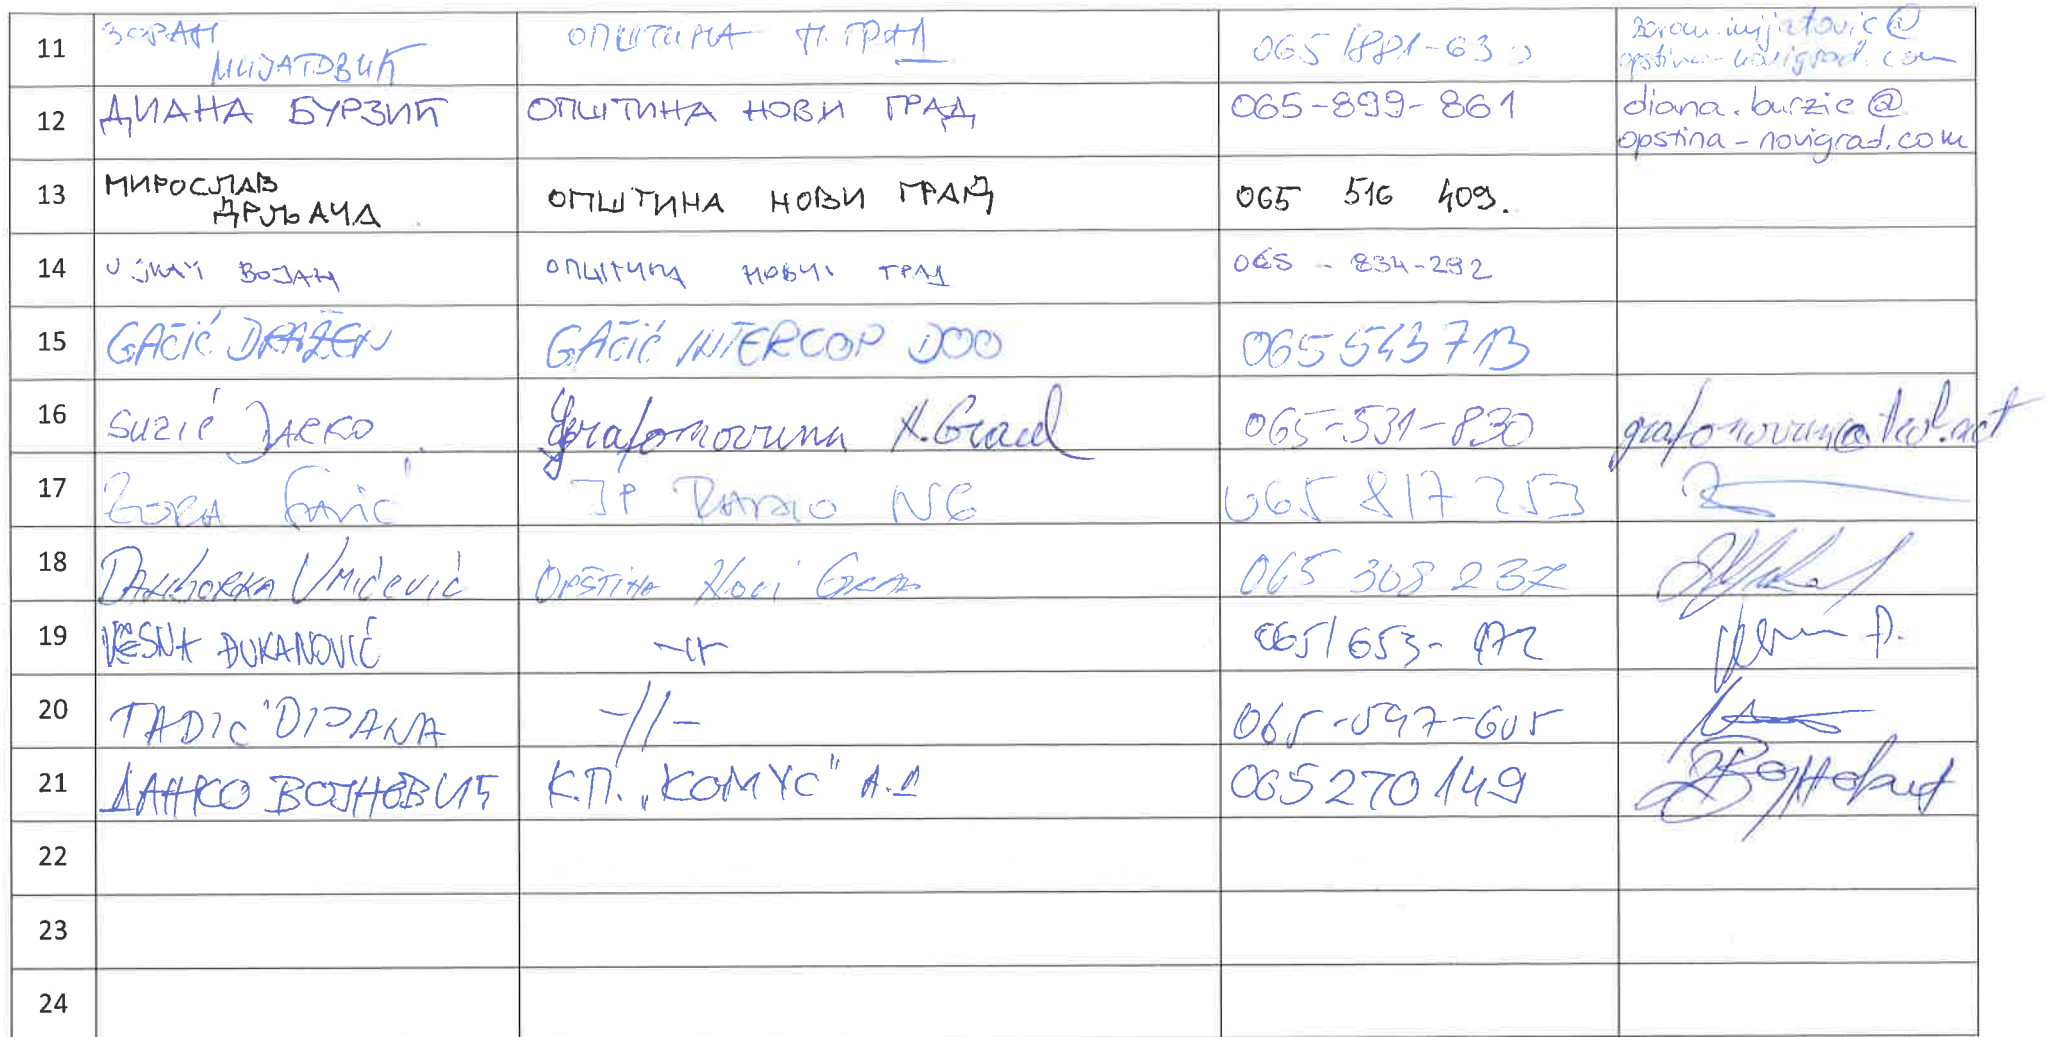 11 ЗОРАН МИЈАТОВИЋ ОПШТИНА Н. ГРАД 065/881-630 zoran.mijatovic@
opstina-novigrad.com
12 ДИАНА БУРЗИЋ ОПШТИНА НОВИ ГРАД 065-899-861 diana.burzic@
opstina-novigrad.com
13 МИРОСЛАВ
ДРЉАЧА ОПШТИНА НОВИ ГРАД 065 516 409.
14 БОЈАН ОПШТИНА НОВИ ГРАД 065-834-292
15 GAČIĆ DRAŽEN GAČIĆ INTERCOP DOO 065 543 713
16 SUZIĆ DARKO Grafonovuna N.Grad 065-531-830
17 ZORA JP RADIO NG 065 817 253
18 DALIBORKA UMIĆEVIĆ OPŠTINA Novi GRAD 065 308 237
19 VESNA ĐUKANOVIĆ -//- 065/653-172
20 TADIĆ -//- 065-597-605
21 ДАНКО ВОЈНОВИЋ К.П. „КОМУС" А.Д 065 270 149 Војновић
22
23
24